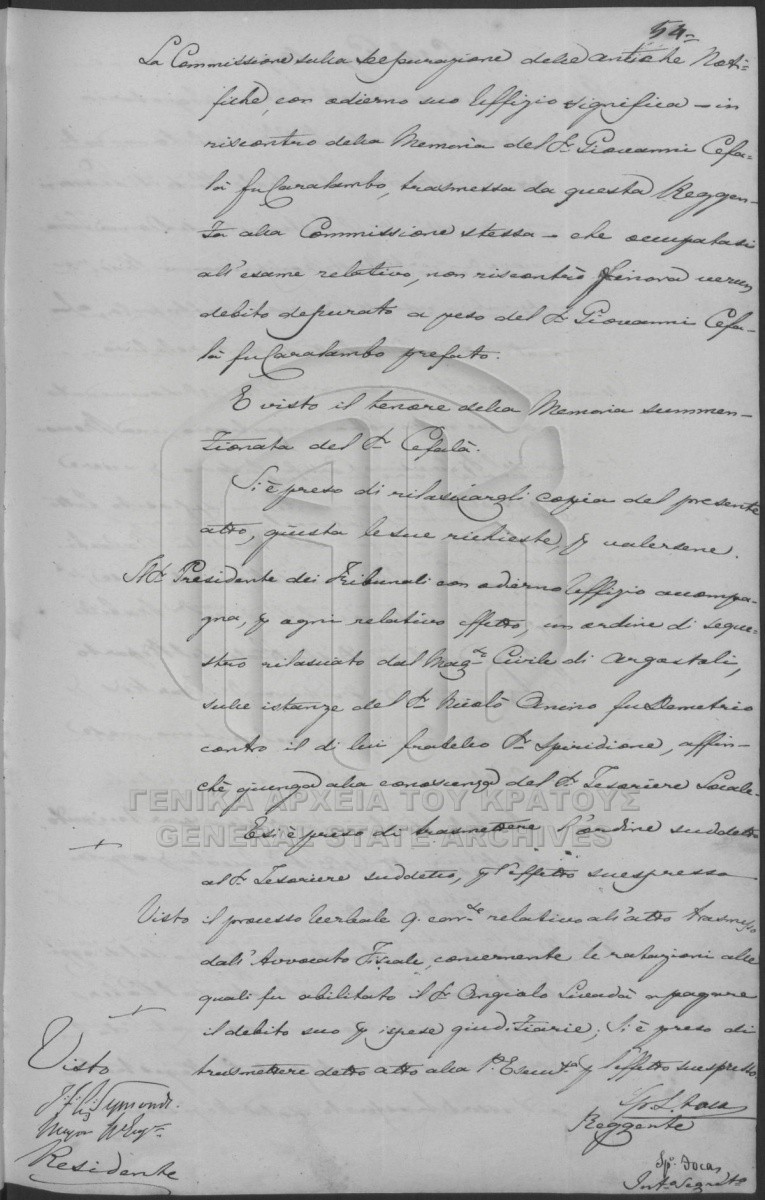 54
La Commissione sulla depurazione delle antiche Noti-
fiche, con odierno suo Uffizio significa - in
riscontro della Memoria del Sr. Giovanni Cefa-
là fu Caralambo, trasmessa da questa Reggen-
za alla Commissione stessa - che occupatasi
all'esame relativo, non riscontrò finora verun
debito depurato a peso del Sr. Giovanni Cefa-
là fu Caralambo prefato.
E visto il tenore della Memoria summen-
zionata del Sr. Cefalà.
Si è preso di rilasciargli copia del presente
atto, giusta le sue richieste, p valersene.
Il Sr. Presidente dei Tribunali con odierno Uffizio accompa-
gna, p ogni relativo effetto, un ordine di seque-
stro rilasciato dal Mag. Civile di Argostoli,
sulle istanze del Sr. Nicolò Anino fu Demetrio
contro il di lui fratello Sr. Spiridione, affin-
chè giunga alla conoscenza del Sr. Tesoriere Locale.
ΓΕΝΙΚΑ ΑΡΧΕΙΑ ΤΟΥ ΚΡΑΤΟΥΣ
GENERAL STATE ARCHIVES
E si è preso di trasmettere l'ordine suddetto
al Sr. Tesoriere suddetto, p l'effetto suespresso
Visto il processo Verbale 9. corr. relativo all'atto trasmesso
dall'Avvocato Fiscale, concernente le ratazioni alle
quali fu abilitato il Sr. Angialo a pagare
il debito suo p ispese giudiziarie; Si è preso di
trasmettere detto atto alla p l'effetto suespresso
Visto
Symonds
Major
Residente
Reggente
Sp. Focas